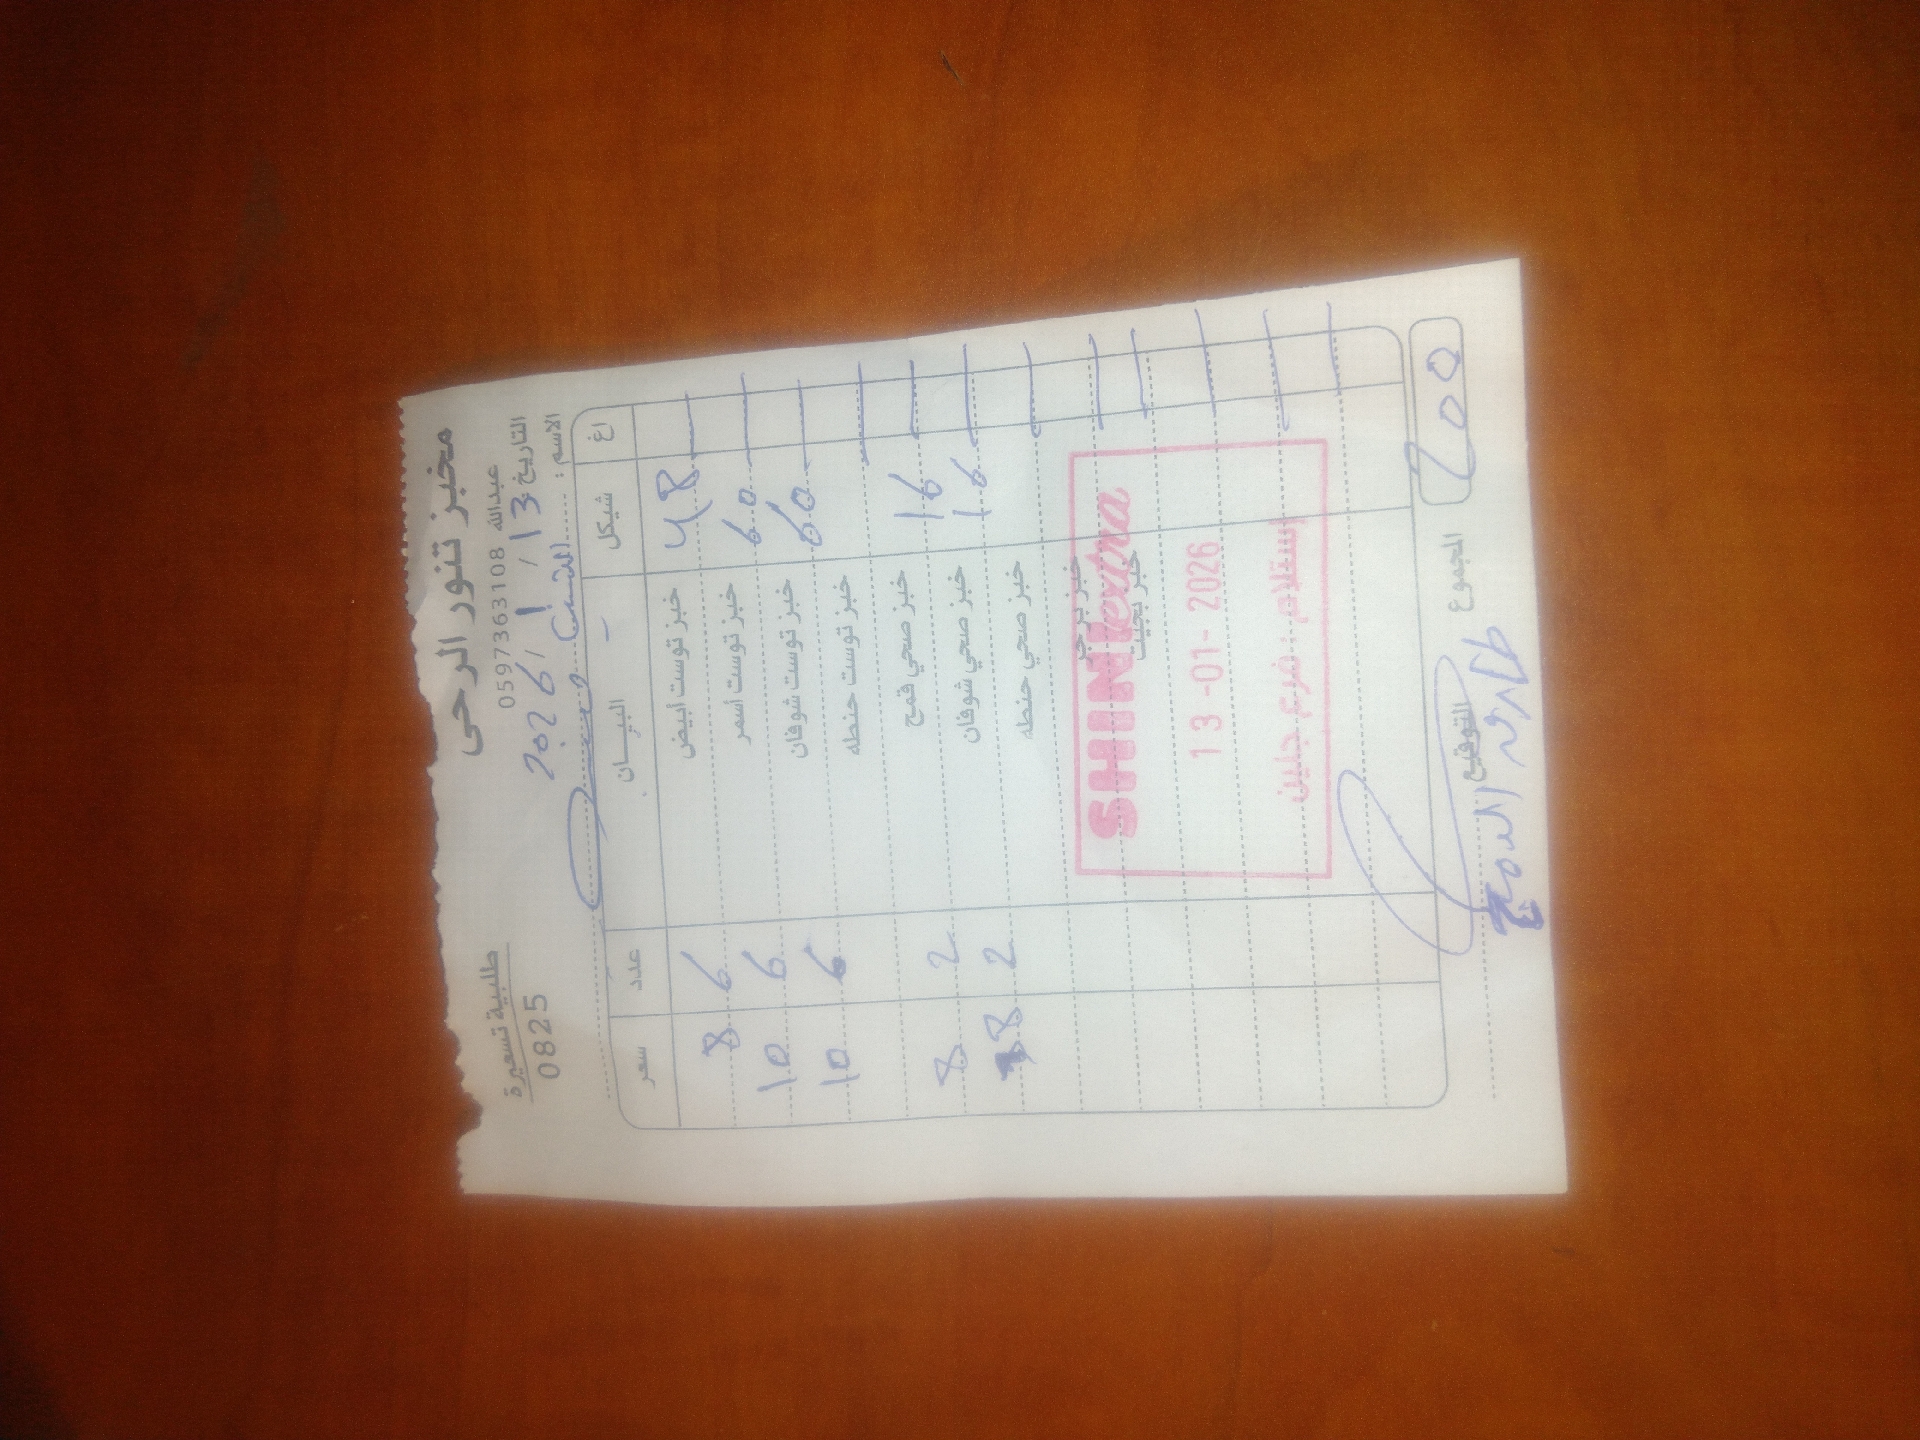 مخبز تنور الرحى
عبدالله 0597363108
طلبية تسعيرة
0825
التاريخ: 13 / 1 / 2026
الاسم:
سعر عدد البيــان شيكل اغ
8 6 خبز توست أبيض 48
10 6 خبز توست أسمر 60
10 6 خبز توست شوفان 60
خبز توست حنطه
8 2 خبز صحي قمح 16
8 2 خبز صحي شوفان 16
خبز صحي حنطه
خبز برجر
خبز بجيت
SHINI extra
13 -01- 2026
إستلام: فرع جلين
المجموع 200
التوقيع